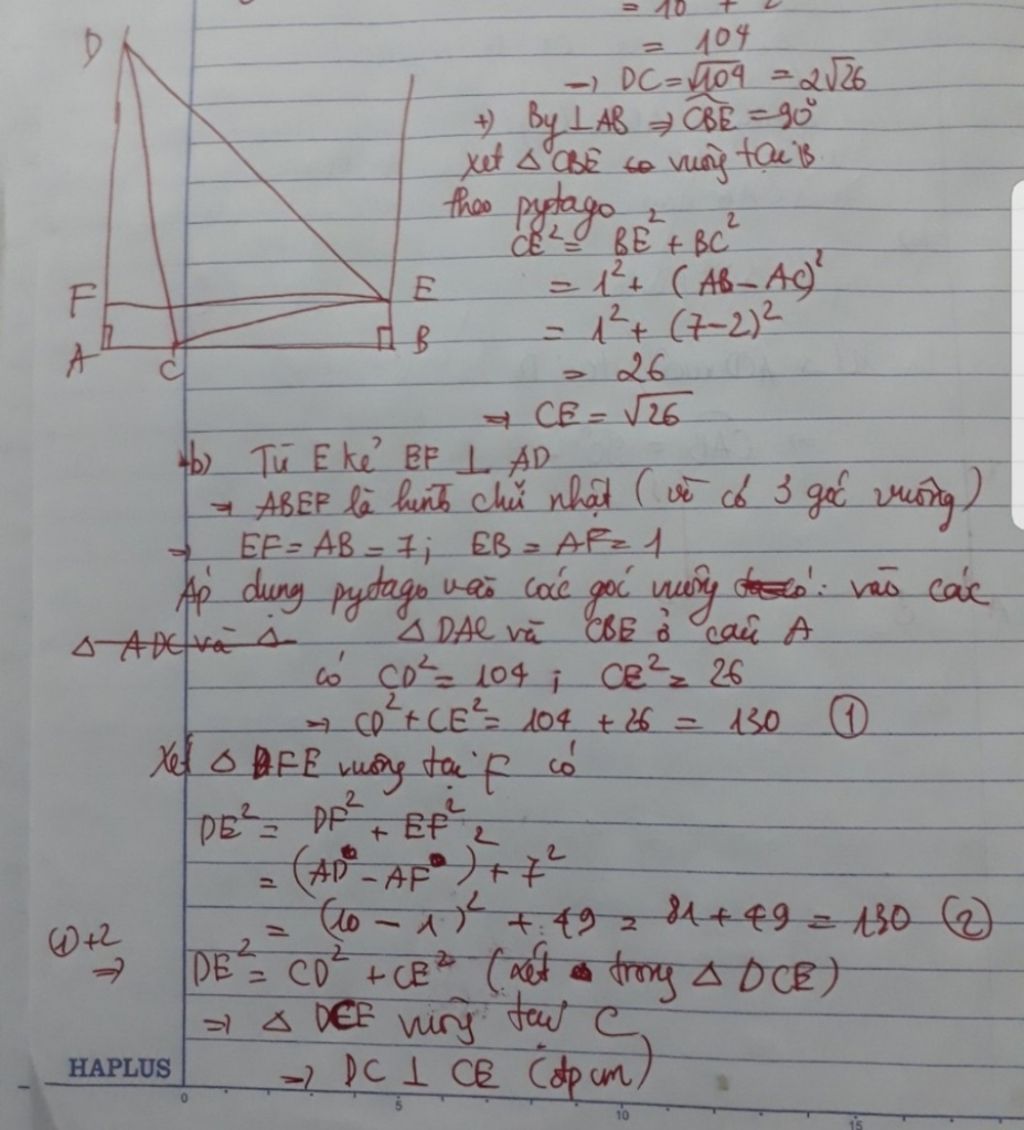 = 10 + 2
= 104
→ DC = √104 = 2√26
+) By ⊥ AB ⇒ CBE = 90°
xét △ CBE vuông tại B
theo pytago
CE² = BE² + BC²
= 1² + (AB - AC)²
= 1² + (7-2)²
= 26
⇒ CE = √26
D
F
E
A
C
B
b) Từ E kẻ EF ⊥ AD
⇒ ABEF là hình chữ nhật (vì có 3 góc vuông)
⇒ EF = AB = 7; EB = AF = 1
Áp dụng pytago vào các góc vuông có: vào các
△ ADC và △ △ DAC và CBE ở câu A
có CD² = 104; CE² = 26
⇒ CD² + CE² = 104 + 26 = 130 ①
Xét △ DFE vuông tại F có
DE² = DF² + EF²
= (AD - AF)² + 7²
= (10 - 1)² + 49 = 81 + 49 = 130 ②
①+2
⇒ DE² = CD² + CE² (xét trong △ DCE)
⇒ △ DCE vuông tại C
⇒ DC ⊥ CE (đpcm)
HAPLUS
0 5 10 15